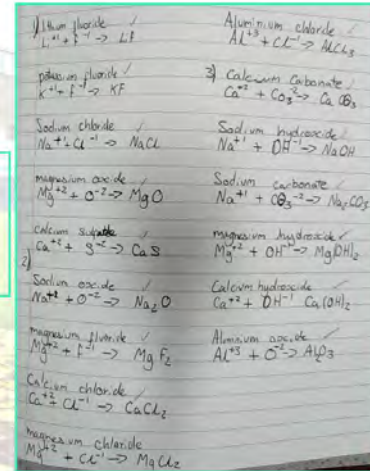 1) lithium fluoride ✓
Li⁺¹ + F⁻¹ → LiF
potassium fluoride ✓
K⁺¹ + F⁻¹ → KF
Sodium chloride ✓
Na⁺¹ + Cl⁻¹ → NaCl
magnesium oxcide ✓
Mg⁺² + O⁻² → MgO
calcium ✓
Ca⁺² + S⁻² → CaS
2)
Sodium oxcide ✓
Na⁺² + O⁻² → Na₂O
magnesium fluoride ✓
Mg⁺² + F⁻¹ → MgF₂
Calcium chloride ✓
Ca⁺² + Cl⁻¹ → CaCl₂
magnesium chloride
Mg⁺² + Cl⁻¹ → MgCl₂
Aluminium chloride ✓
Al⁺³ + Cl⁻¹ → AlCl₃
3) Calcium Carbonate ✓
Ca⁺² + CO₃⁻² → CaCO₃
Sodium hydroxide ✓
Na⁺¹ + OH⁻¹ → NaOH
Sodium carbonate ✓
Na⁺¹ + CO₃⁻² → Na₂CO₃
magnesium hydroxide ✓
Mg⁺² + OH⁻¹ → Mg(OH)₂
Calcium hydroxide ✓
Ca⁺² + OH⁻¹ Ca(OH)₂
Aluminium oxcide ✓
Al⁺³ + O⁻² → Al₂O₃